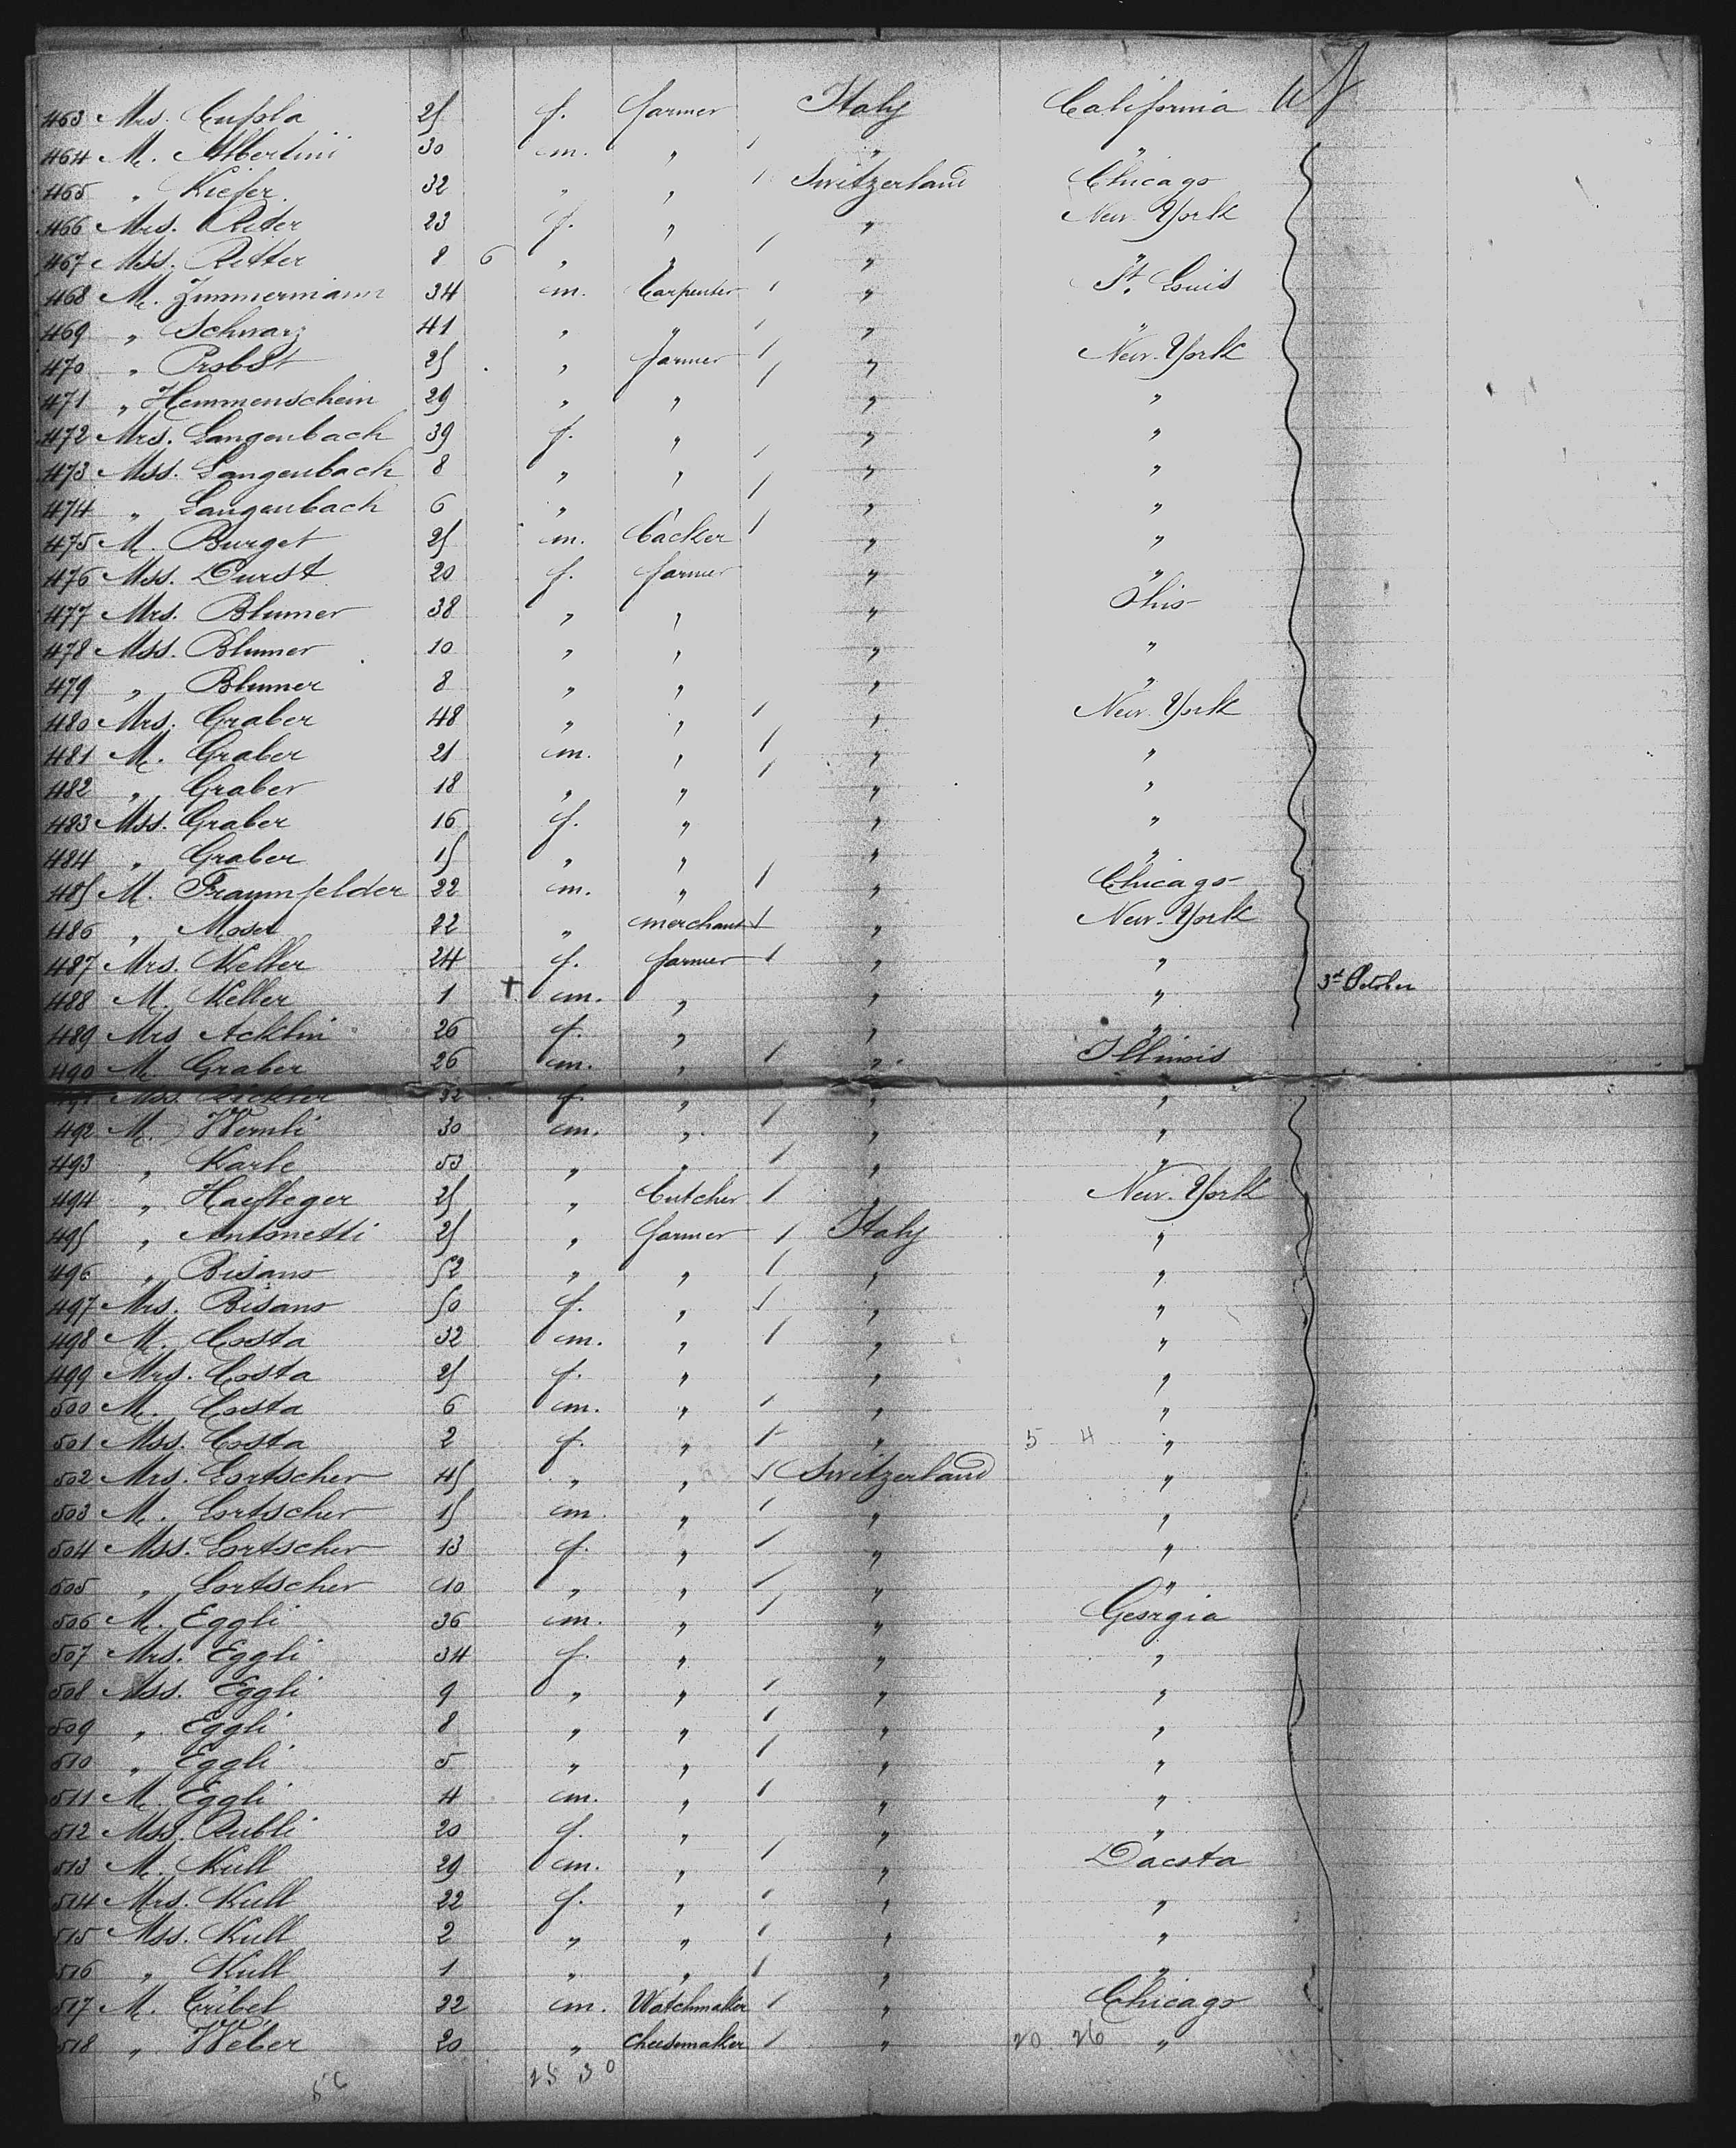 463 Mrs. Cupola 25 f. farmer Italy California
464 M. Albertini 30 m. " " "
465 " Kiefer 32 " " Switzerland Chicago
466 Mrs. Ritter 23 f. " " New-York
467 Mss. Ritter 8 6 " " " "
468 M. Zimmermann 34 m. Carpenter " St. Louis
469 " Schwarz 41 " " " "
470 " Probst 25 " farmer " New-York
471 " Hemmenschein 29 " " " "
472 Mrs. Langenbach 39 f. " " "
473 Mss. Langenbach 8 " " " "
474 " Langenbach 6 " " " "
475 M. Burget 25 m. backer " "
476 Mss. Durst 20 f. farmer " "
477 Mrs. Blumer 38 " " " Ohio
478 Mss. Blumer 10 " " " "
479 " Blumer 8 " " " "
480 Mrs. Graber 48 " " " New-York
481 M. Graber 21 m. " " "
482 " Graber 18 " " " "
483 Mss. Graber 16 f. " " "
484 " Graber 15 " " " "
485 M. Fraumfelder 22 m. " " Chicago
486 " Moser 22 " merchant " New-York
487 Mrs. Keller 24 f. farmer " "
488 M. Keller 1 + m. " " " 3d October
489 Mrs Acklin 26 f. " " "
490 M. Graber 26 m. " " Illinois
491 Mss. 32 f. " " "
492 M. Wernli 30 m. " " "
493 " Karle 53 " " " "
494 " Haefleger 25 " butcher " New-York
495 " Antonetti 25 " farmer Italy "
496 " Bisano 52 " " " "
497 Mrs. Bisano 50 f. " " "
498 M. Costa 32 m. " " "
499 Mrs. Costa 25 f. " " "
500 M. Costa 6 m. " " "
501 Mss. Costa 2 f. " " 5 4 "
502 Mrs. Lortscher 45 " " Switzerland "
503 M. Lortscher 15 m. " " "
504 Mss. Lortscher 13 f. " " "
505 " Lortscher 10 " " " "
506 M. Eggli 36 m. " " Georgia
507 Mrs. Eggli 34 f. " " "
508 Mss. Eggli 9 " " " "
509 " Eggli 8 " " " "
510 " Eggli 5 " " " "
511 M. Eggli 4 m. " " "
512 Mss. Rubli 20 f. " " "
513 M. Kull 29 m. " " Dacota
514 Mrs. Kull 22 f. " " "
515 Mss. Kull 2 " " " "
516 " Kull 1 " " " "
517 M. Gribel 22 m. Watchmaker " Chicago
518 " Weber 20 " Cheesemaker " 20 26 "
56 25 30